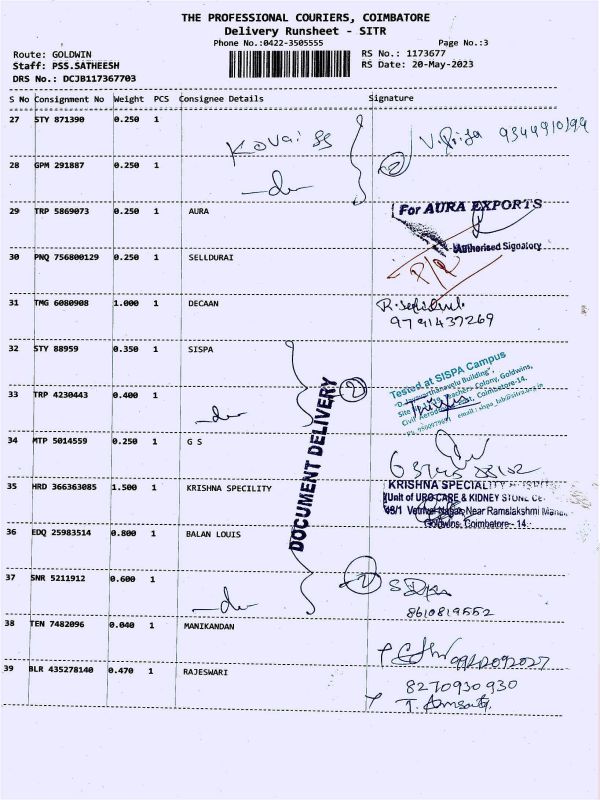 THE PROFESSIONAL COURIERS, COIMBATORE
Delivery Runsheet - SITR
Phone No.:0422-3505555 Page No.:3
Route: GOLDWIN RS No.: 1173677
Staff: PSS.SATHEESH RS Date: 20-May-2023
DRS No.: DCJB117367703
S No Consignment No Weight PCS Consignee Details Signature
27 STY 871390 0.250 1 Kovai SS V. Priya 9344910194
28 GPM 291887 0.250 1 -do- 2
29 TRP 5869073 0.250 1 AURA For AURA EXPORTS
Authorised Signatory
30 PNQ 756800129 0.250 1 SELLDURAI
31 TMG 6080908 1.000 1 DECAAN
9791437269
32 STY 88959 0.350 1 SISPA
Tested at SISPA Campus
33 TRP 4230443 0.400 1 -do- 2
Teachers Colony, Goldwins,
Coimbatore-14.
34 MTP 5014559 0.250 1 G S
DOCUMENT DELIVERY
35 HRD 366363085 1.500 1 KRISHNA SPECILITY KRISHNA SPECIALITY
(Unit of URO CARE & KIDNEY STONE
48/1 Near Ramalakshmi
Goldwins, Coimbatore - 14.
36 EDQ 25983514 0.800 1 BALAN LOUIS
37 SNR 5211912 0.600 1 -do- 2
8610819552
38 TEN 7482096 0.040 1 MANIKANDAN
39 BLR 435278140 0.470 1 RAJESWARI 8270930930